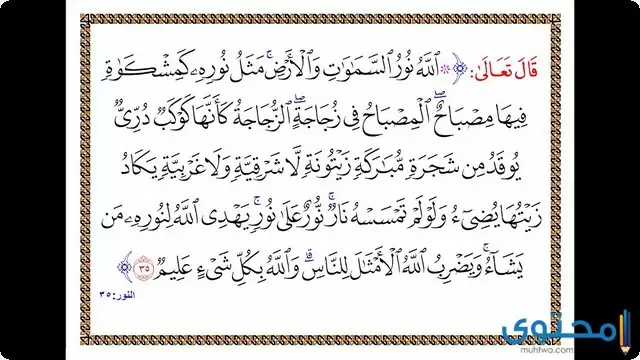 قَالَ تَعَالَىٰ: ﴿ * ٱللَّهُ نُورُ ٱلسَّمَٰوَٰتِ وَٱلْأَرْضِ ۚ مَثَلُ نُورِهِۦ كَمِشْكَوٰةٍ
فِيهَا مِصْبَاحٌ ۖ ٱلْمِصْبَاحُ فِى زُجَاجَةٍ ۖ ٱلزُّجَاجَةُ كَأَنَّهَا كَوْكَبٌ دُرِّىٌّ
يُوقَدُ مِن شَجَرَةٍ مُّبَٰرَكَةٍ زَيْتُونَةٍ لَّا شَرْقِيَّةٍ وَلَا غَرْبِيَّةٍ يَكَادُ
زَيْتُهَا يُضِىٓءُ وَلَوْ لَمْ تَمْسَسْهُ نَارٌ ۚ نُّورٌ عَلَىٰ نُورٍ ۗ يَهْدِى ٱللَّهُ لِنُورِهِۦ مَن
يَشَآءُ ۚ وَيَضْرِبُ ٱللَّهُ ٱلْأَمْثَٰلَ لِلنَّاسِ ۗ وَٱللَّهُ بِكُلِّ شَىْءٍ عَلِيمٌ ٣٥ ﴾
النور: ٣٥
محتوى
muhtwa.com